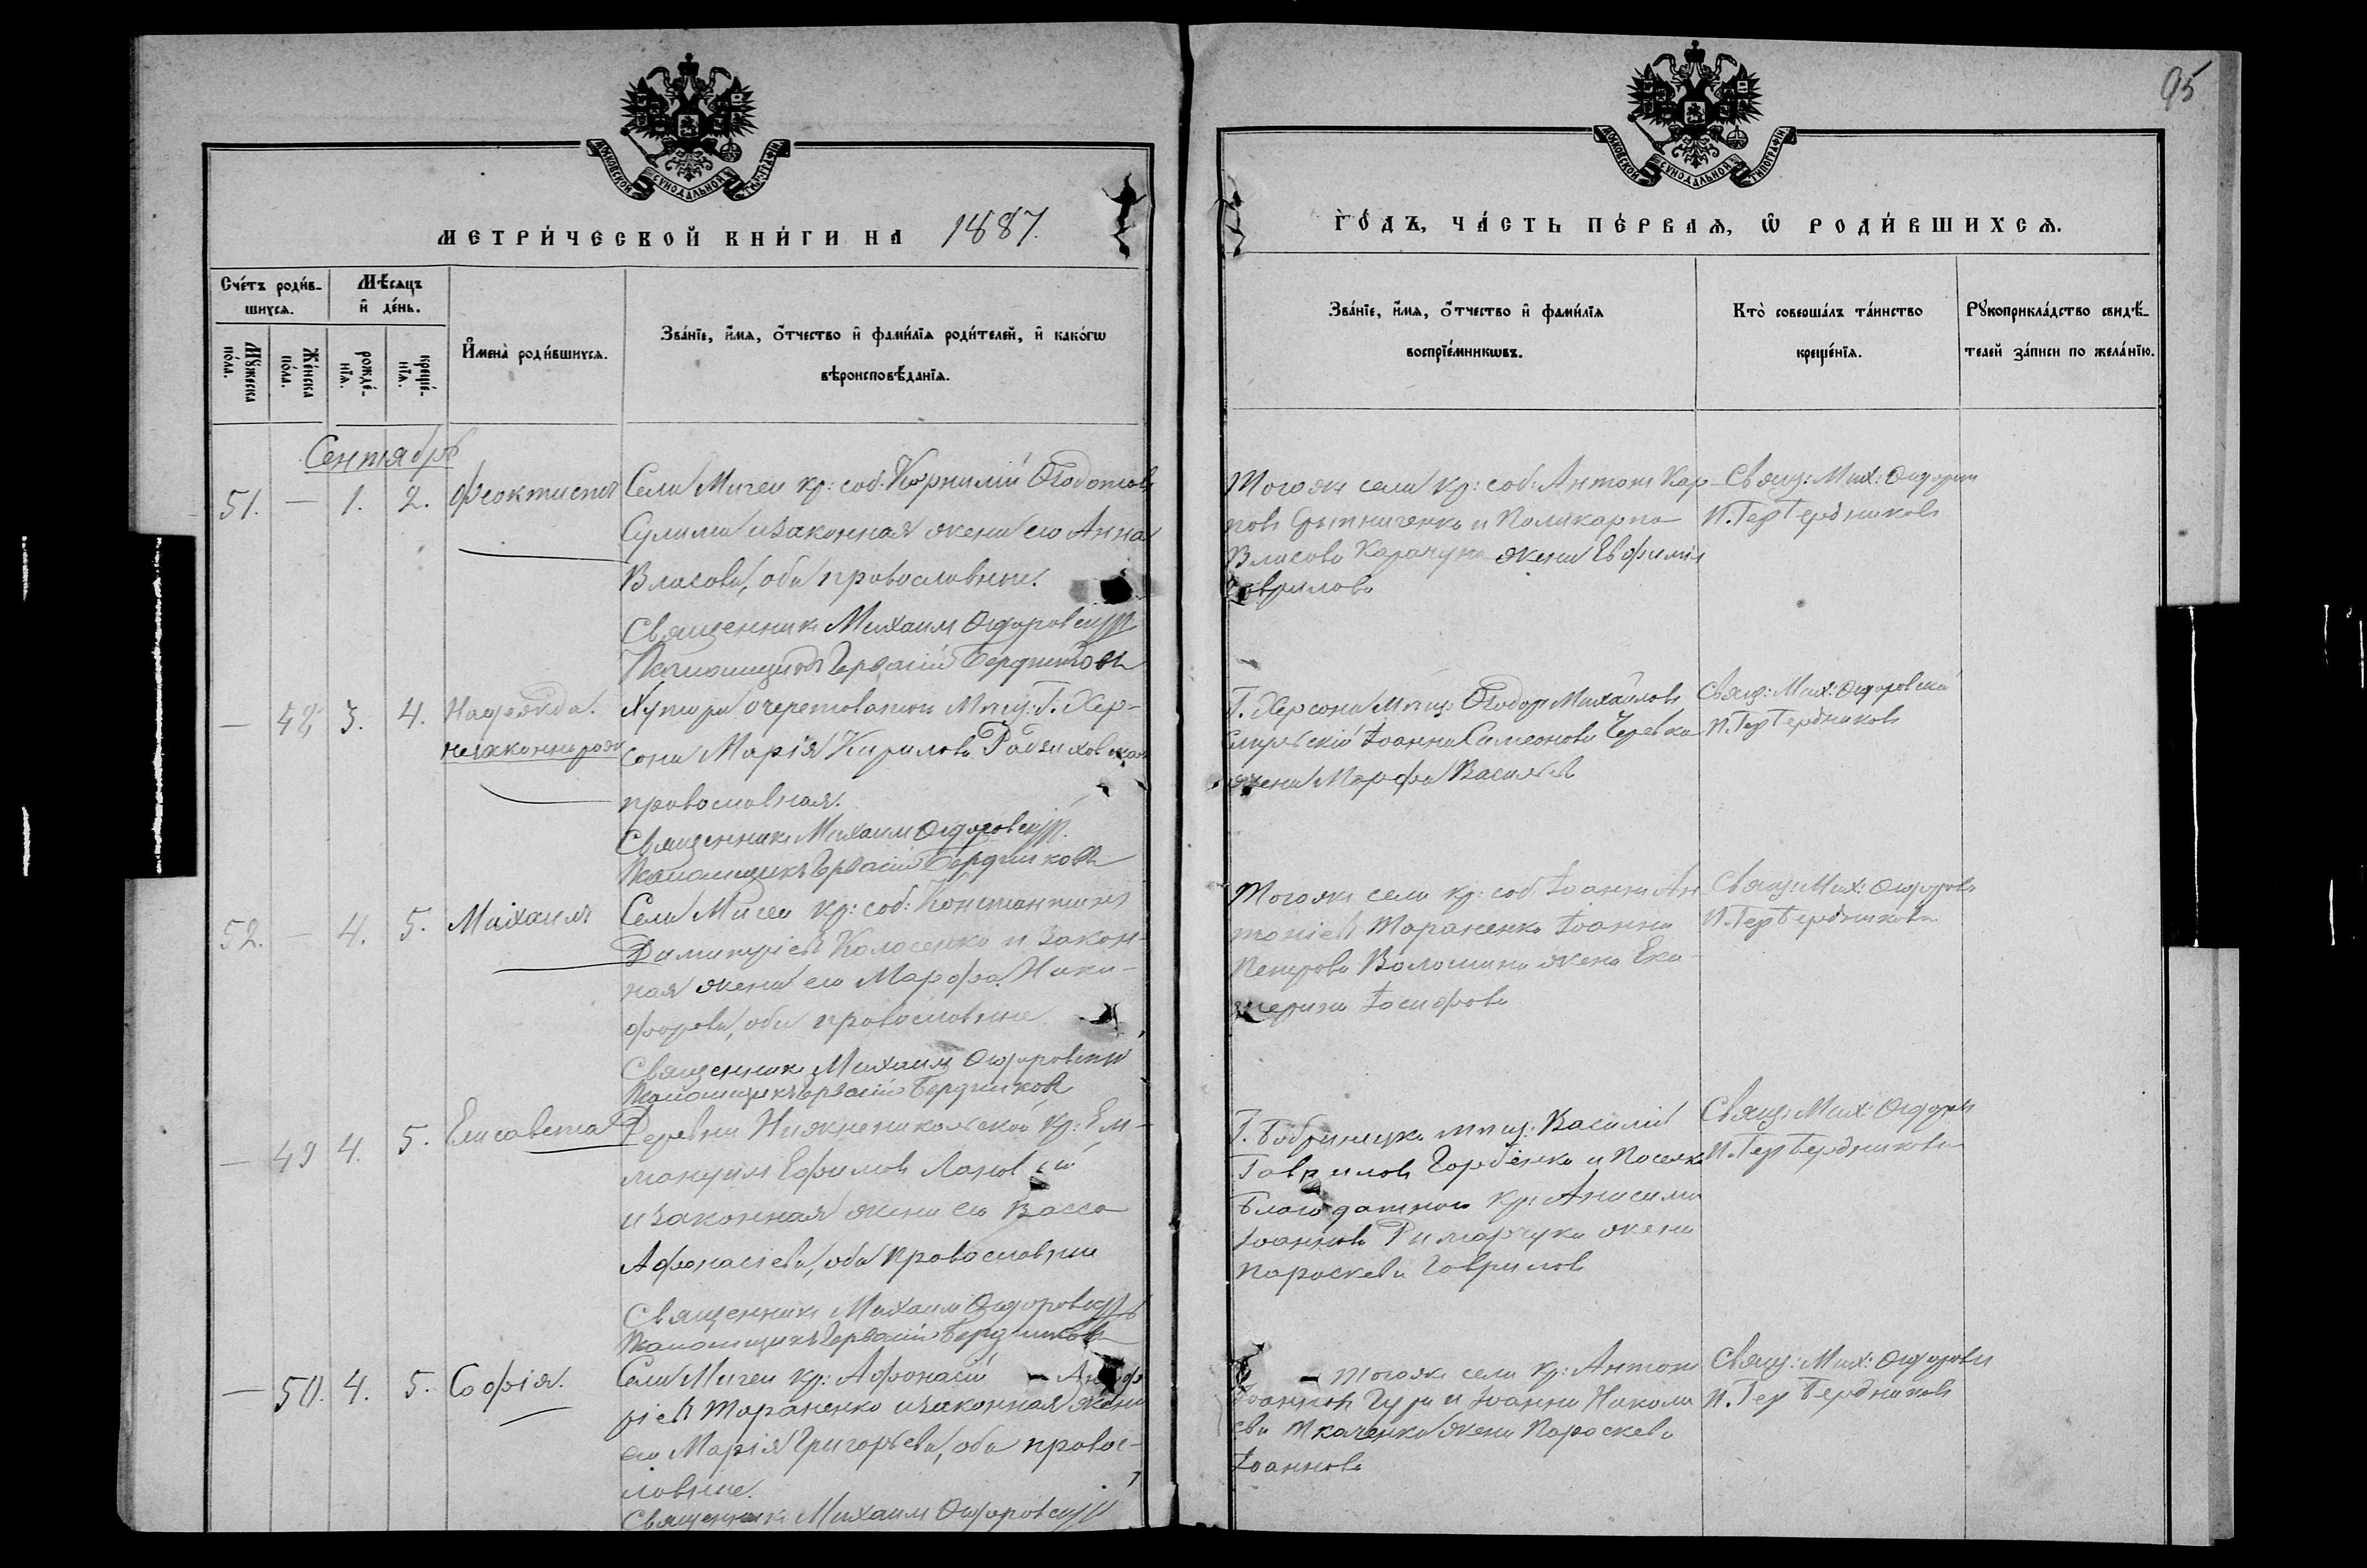 95
МОСКОВСКОЙ СѴНОДАЛЬНОЙ ТИПОГРАФІИ
МОСКОВСКОЙ СѴНОДАЛЬНОЙ ТИПОГРАФІИ
МЕТРИ́ЧЕСКОЙ КНИ́ГИ НА 1887.
ГО́ДЪ, ЧА́СТЬ ПЕ́РВАѦ, Ѡ҆ РОДИ́ВШИХСѦ.
Сче́тъ роди́в-
шихсѧ.
Мѣ́сѧцъ
и҆ де́нь.
Мꙋ́жеска
по́ла.
Же́нска
по́ла.
рожде́-
нїѧ.
креще́-
нїѧ.
И҆мена̀ роди́вшихсѧ.
Зва́нїе, и҆́мѧ, ѻ҆́тчество и҆ фами́лїѧ роди́телей, и҆ како́гѡ
вѣроисповѣ́данїѧ.
Зва́нїе, и҆́мѧ, ѻ҆́тчество и҆ фами́лїѧ
воспрїе́мникѡвъ.
Кто̀ соверша́лъ та́инство
креще́нїѧ.
Рꙋкоприкла́дство свидѣ́-
телей за́писи по жела́нїю.
Сентябрь
51. — 1. 2. Феоктистъ
Села Мигеи кр: соб: Корнилій Ѳеодотовъ
Сулима и законная жена его Анна
Власова, оба православные.
Священникъ Михаилъ
Псаломщикъ Гервасій Бердниковъ
Тогоже села кр: соб: Антонъ Кар-
повъ и Поликарпа
Власова Карачуна жена Евфимія
Гаврилова
Свящ: Мих:
П. Гер Бердниковъ
— 48 3. 4. Надежда.
незаконнорож
Хутора Очеретоватой Мѣщ: Г. Хер-
сона Марія Кирилова Радзиховская
православная.
Священникъ Михаилъ
Псаломщикъ Гервасій Бердниковъ
Г. Херсона Мѣщ: Ѳеодоръ Михайловъ
Іоанна Симеонова Черевка
жена Марфа Васильева
Свящ: Мих:
П. Гер Бердниковъ
52. — 4. 5. Михаилъ
Села Мигеи кр: соб: Константинъ
Димитріевъ Колосенко и закон-
ная жена его Марфа Ники-
форова, оба православные
Священникъ Михаилъ
Псаломщикъ Гервасій Бердниковъ
Тогоже села кр: соб: Іоаннъ Ан-
тоніевъ Тараненко Іоанна
Петрова Волошина жена Ека-
терина Іосифова
Свящ: Мих:
П. Гер Бердниковъ
— 49 4. 5. Елисавета
Деревни Нижненикольской кр: Ем-
мануилъ Ефимовъ
и законная жена его Васса
Афанасіева, оба православные
Священникъ Михаилъ
Псаломщикъ Гервасій Бердниковъ
Г. Бобринца мѣщ: Василій
Гавриловъ Горбенко и Поселка
Благодатнаго кр: Анисима
Іоаннова Римарчука жена
Параскева Гаврилова
Свящ: Мих:
П. Гер Бердниковъ
— 50. 4. 5. Софія.
Села Мигеи кр: Афанасій —
Тараненко и законная жена
его Марія Григорьева, оба правос-
лавные.
Священникъ Михаилъ
— Тогоже села кр: Антонъ
Іоанновъ Гура и Іоанна Никола-
ева Ткаченка жена Параскева
Іоаннова
Свящ: Мих:
П. Гер Бердниковъ